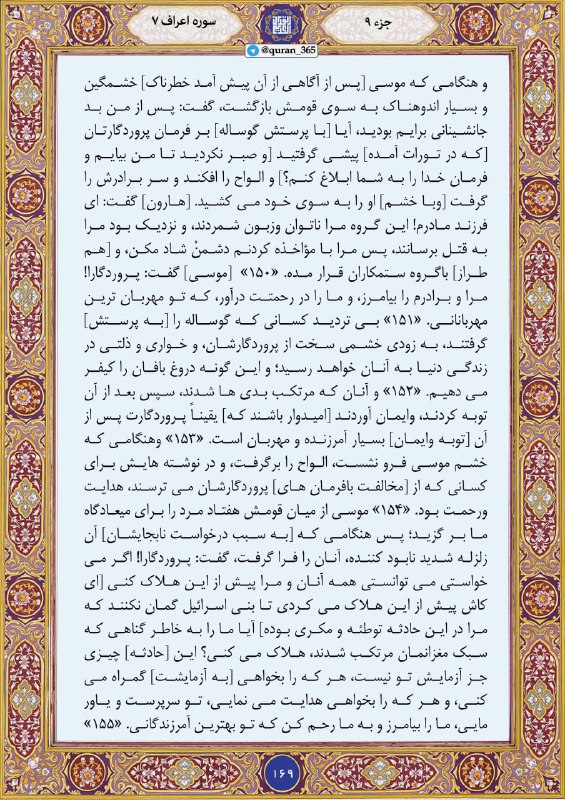 جزء ۹
سوره اعراف ۷
@quran_365
و هنگامی که موسی [پس از آگاهی از آن پیش آمد خطرناک] خشمگین
و بسیار اندوهناک به سوی قومش بازگشت، گفت: پس از من بد
جانشینانی برایم بودید، آیا [با پرستش گوساله] بر فرمان پروردگارتان
[که در تورات آمده] پیشی گرفتید [و صبر نکردید تا من بیایم و
فرمان خدا را به شما ابلاغ کنم؟] و الواح را افکند و سر برادرش را
گرفت [وبا خشم] او را به سوی خود می کشید. [هارون] گفت: ای
فرزند مادرم! این گروه مرا ناتوان وزبون شمردند، و نزدیک بود مرا
به قتل برسانند، پس مرا با مؤاخذه کردنم دشمنْ شاد مکن، و [هم
طراز] باگروه ستمکاران قرار مده. «۱۵۰» [موسی] گفت: پروردگارا!
مرا و برادرم را بیامرز، و ما را در رحمتت درآور، که تو مهربان ترین
مهربانانی. «۱۵۱» بی تردید کسانی که گوساله را [به پرستش]
گرفتند، به زودی خشمی سخت از پروردگارشان، و خواری و ذلتی در
زندگی دنیا به آنان خواهد رسید؛ و این گونه دروغ بافان را کیفر
می دهیم. «۱۵۲» و آنان که مرتکب بدی ها شدند، سپس بعد از آن
توبه کردند، وایمان آوردند [امیدوار باشند که] یقیناً پروردگارت پس از
آن [توبه وایمان] بسیار آمرزنده و مهربان است. «۱۵۳» وهنگامی که
خشم موسی فرو نشست، الواح را برگرفت، و در نوشته هایش برای
کسانی که از [مخالفت بافرمان های] پروردگارشان می ترسند، هدایت
ورحمت بود. «۱۵۴» موسی از میان قومش هفتاد مرد را برای میعادگاه
ما بر گزید؛ پس هنگامی که [به سبب درخواست نابجایشان] آن
زلزله شدید نابود کننده، آنان را فرا گرفت، گفت: پروردگارا! اگر می
خواستی می توانستی همه آنان و مرا پیش از این هلاک کنی [ای
کاش پیش از این هلاک می کردی تا بنی اسرائیل گمان نکنند که
مرا در این حادثه توطئه و مکری بوده] آیا ما را به خاطر گناهی که
سبک مغزانمان مرتکب شدند، هلاک می کنی؟ این [حادثه] چیزی
جز آزمایش تو نیست، هر که را بخواهی [به آزمایشت] گمراه می
کنی، و هر که را بخواهی هدایت می نمایی، تو سرپرست و یاور
مایی، ما را بیامرز و به ما رحم کن که تو بهترین آمرزندگانی. «۱۵۵»
۱۶۹